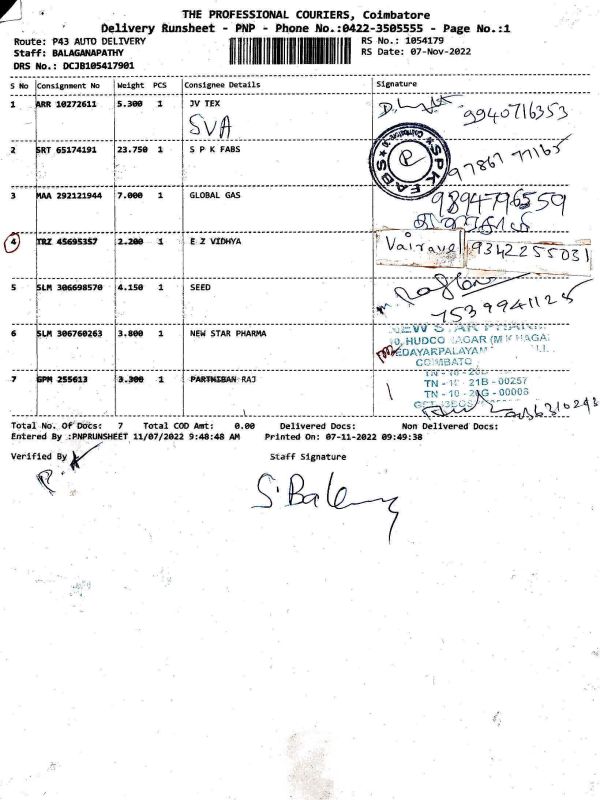 THE PROFESSIONAL COURIERS, Coimbatore
Delivery Runsheet - PNP - Phone No.:0422-3505555 - Page No.:1
Route: P43 AUTO DELIVERY
RS No.: 1054179
Staff: BALAGANAPATHY
RS Date: 07-Nov-2022
DRS No.: DCJB105417901
S No Consignment No Weight PCS Consignee Details Signature
1 ARR 10272611 5.300 1 JV TEX
SVA
9940716353
2 SRT 65174191 23.750 1 S P K FABS
SPK FABS
97867 77165
3 MAA 292121944 7.000 1 GLOBAL GAS
9894796559
4 TRZ 45695357 2.200 1 E Z VIDHYA
Vairavel 9342255031
5 SLM 306698570 4.150 1 SEED
7539941125
6 SLM 306760263 3.800 1 NEW STAR PHARMA
HUDCO
COIMBATO
7 GPM 255613 3.300 1 PARTHIBAN RAJ
21B - 00257
TN - 10 - 
Total No. Of Docs: 7 Total COD Amt: 0.00 Delivered Docs: Non Delivered Docs:
Entered By :PNPRUNSHEET 11/07/2022 9:48:48 AM Printed On: 07-11-2022 09:49:38
Verified By
Staff Signature